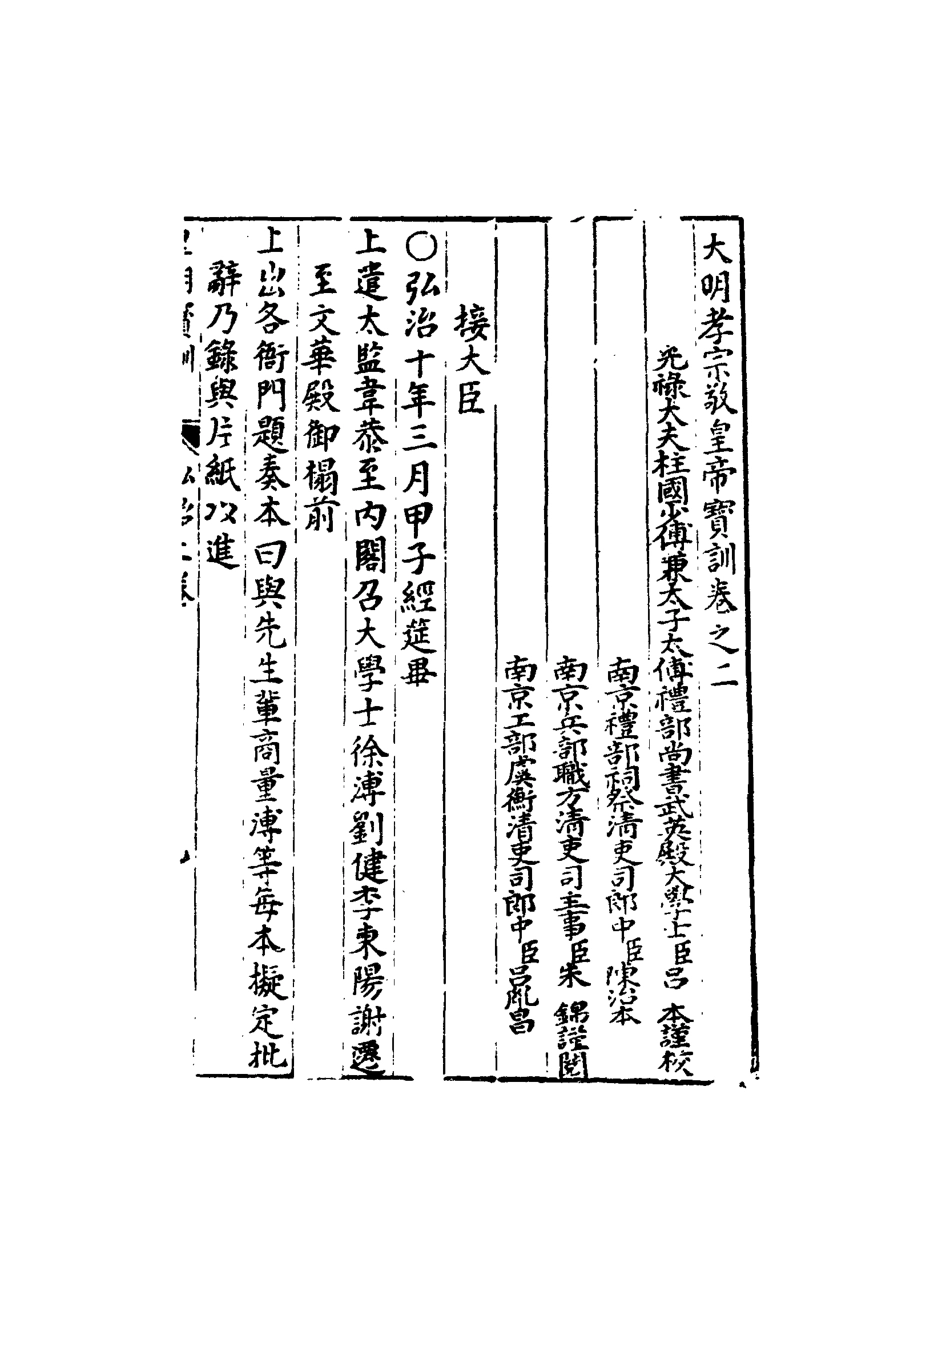 大明孝宗敬皇帝寶訓卷之二
光祿大夫柱國少傅兼太子太傅禮部尚書武英殿大學士臣呂　本謹校
南京禮部祠祭淸吏司郎中臣陳治本
南京兵部職方淸吏司主事臣朱　錦謹閱
南京工部虞衡清吏司郎中臣呂胤昌
接大臣
〇弘治十年三月甲子經筵畢
上遣太監韋恭至內閣召大學士徐溥劉健李東陽謝遷
至文華殿御榻前
上出各衙門題奏本曰與先生輩商量溥等每本擬定批
辭乃錄與片紙以進